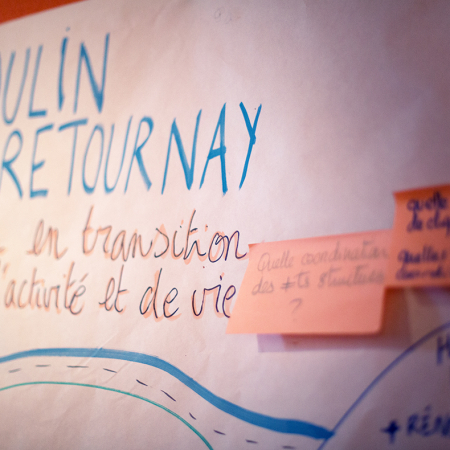 OULIN
RETOURNAY
en transition
activité et de vie
Quelle coordination
des #ts structures
?
quelle
de
quelles
+ RÉN